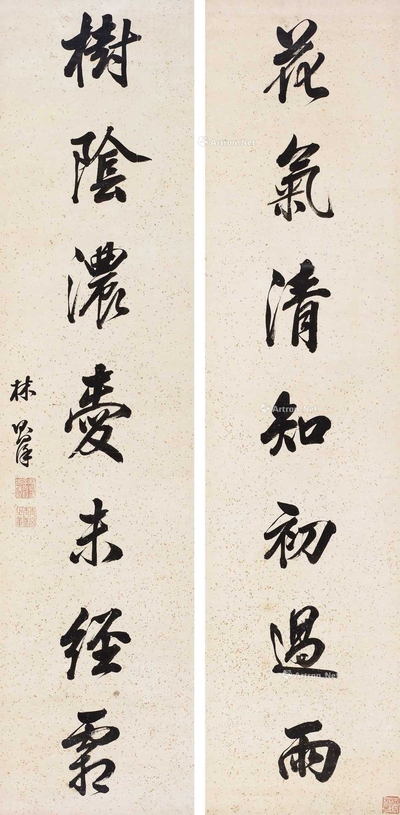 花氣清知初過雨
樹陰濃愛未經霜
林則徐
Artron.Net